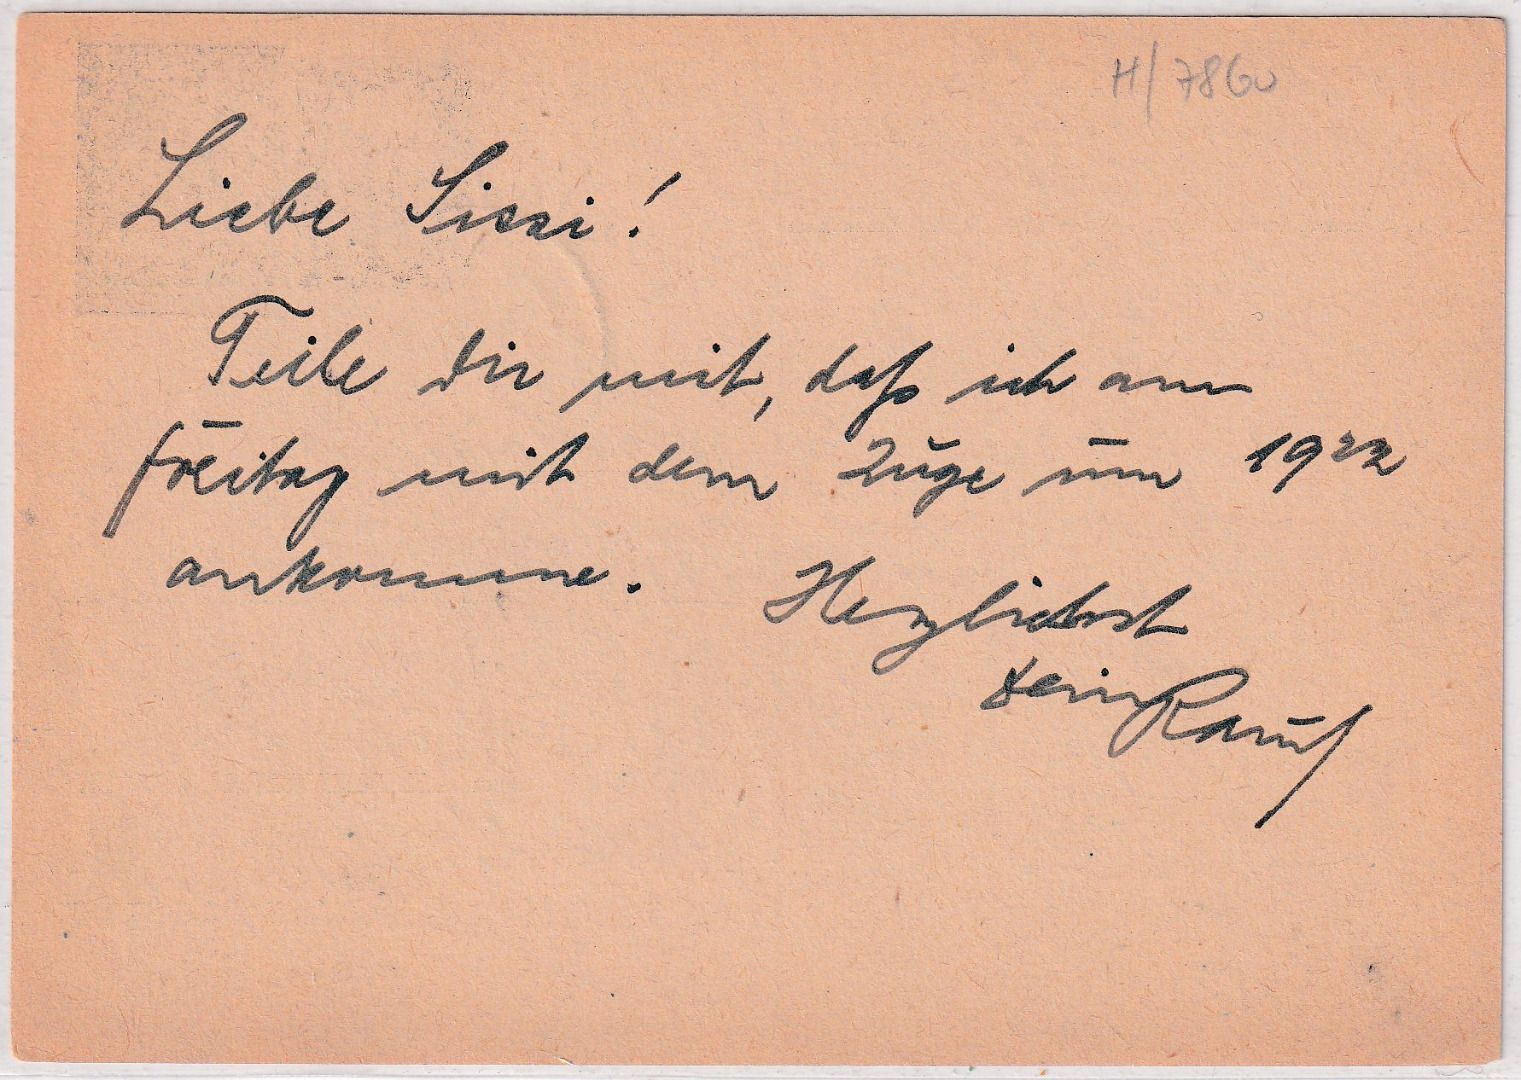 H/7860
Liebe Sissi!
Teile dir mit, daß ich am
Freitag mit dem Zuge um 19²²
ankomme. Herzlichst
dein